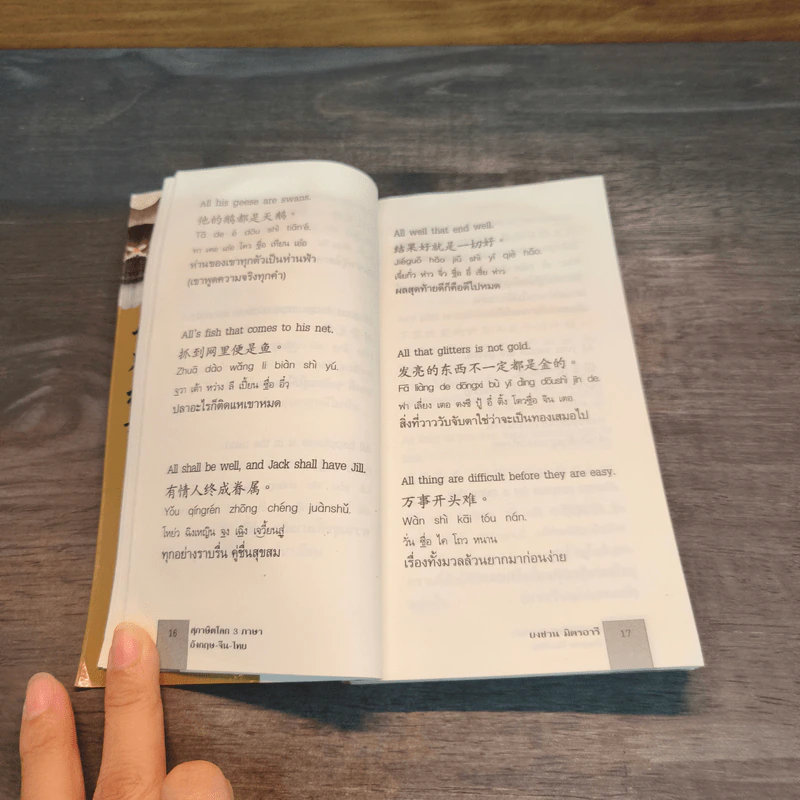 All his geese are swans.
他的鹅都是天鹅。
Tā de é dōu shì tiān'é.
ทา เตอ เอ๋อ โตว ชื่อ เทียน เอ๋อ
ห่านของเขาทุกตัวเป็นห่านฟ้า
(เขาพูดความจริงทุกคำ)
All's fish that comes to his net.
抓到网里便是鱼。
Zhuā dào wǎng li biàn shì yú.
จวา เต้า หว่าง ลี เปี้ยน ชื่อ อี๋ว
ปลาอะไรก็ติดแหเขาหมด
All shall be well, and Jack shall have Jill.
有情人终成眷属。
Yǒu qíngrén zhōng chéng juànshǔ.
โหย่ว ฉิงเหญิน จง เฉิง เจวี้ยนสู่
ทุกอย่างราบรื่น คู่ชื่นสุขสม
16 สุภาษิตโลก 3 ภาษา
อังกฤษ-จีน-ไทย
All well that end well.
结果好就是一切好。
Jiéguǒ hǎo jiù shì yī qiè hǎo.
เจี๋ยกั่ว ห่าว จิ้ว ชื่อ อี้ เชี่ย ห่าว
ผลสุดท้ายดีก็คือดีไปหมด
All that glitters is not gold.
发亮的东西不一定都是金的。
Fā liàng de dōngxi bù yī dìng dōushì jīn de.
ฟา เลี่ยง เตอ ตงซี ปู้ อี๋ ติ้ง โตวชื่อ จิน เตอ
สิ่งที่วาววับจับตาใช่ว่าจะเป็นทองเสมอไป
All thing are difficult before they are easy.
万事开头难。
Wàn shì kāi tóu nán.
วั่น ชื่อ ไค โถว หนาน
เรื่องทั้งมวลล้วนยากมาก่อนง่าย
บงช่าน มิตรอารี 17